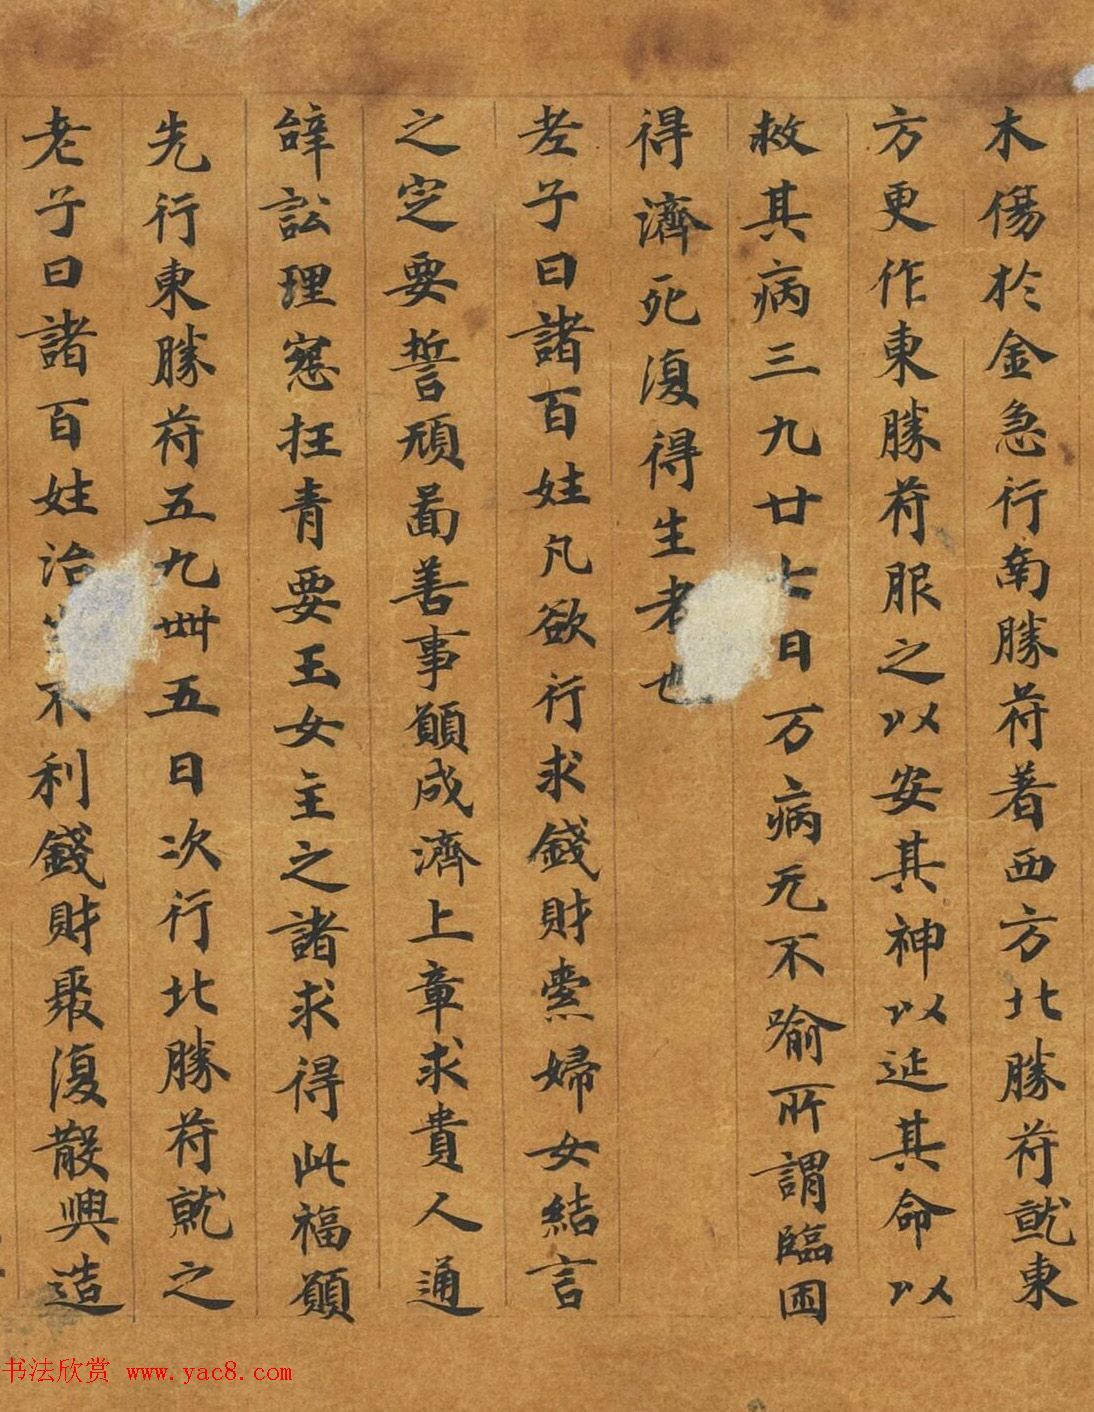 木傷於金急行南勝符着西方北勝符就東
方更作東勝符服之以安其神以延其命以
救其病三九廿七日万病无不喻所謂臨困
得濟死復得生者也
老子曰諸百姓凡欲行求錢財索婦女結言
之定要誓頑嚚善事願成濟上章求貴人通
辤訟理窓抂青要玉女主之諸求得此福願
先行東勝符五九卌五日次行北勝符就之
老子曰諸百姓治不利錢財聚復散興造
书法欣赏 www.yac8.com